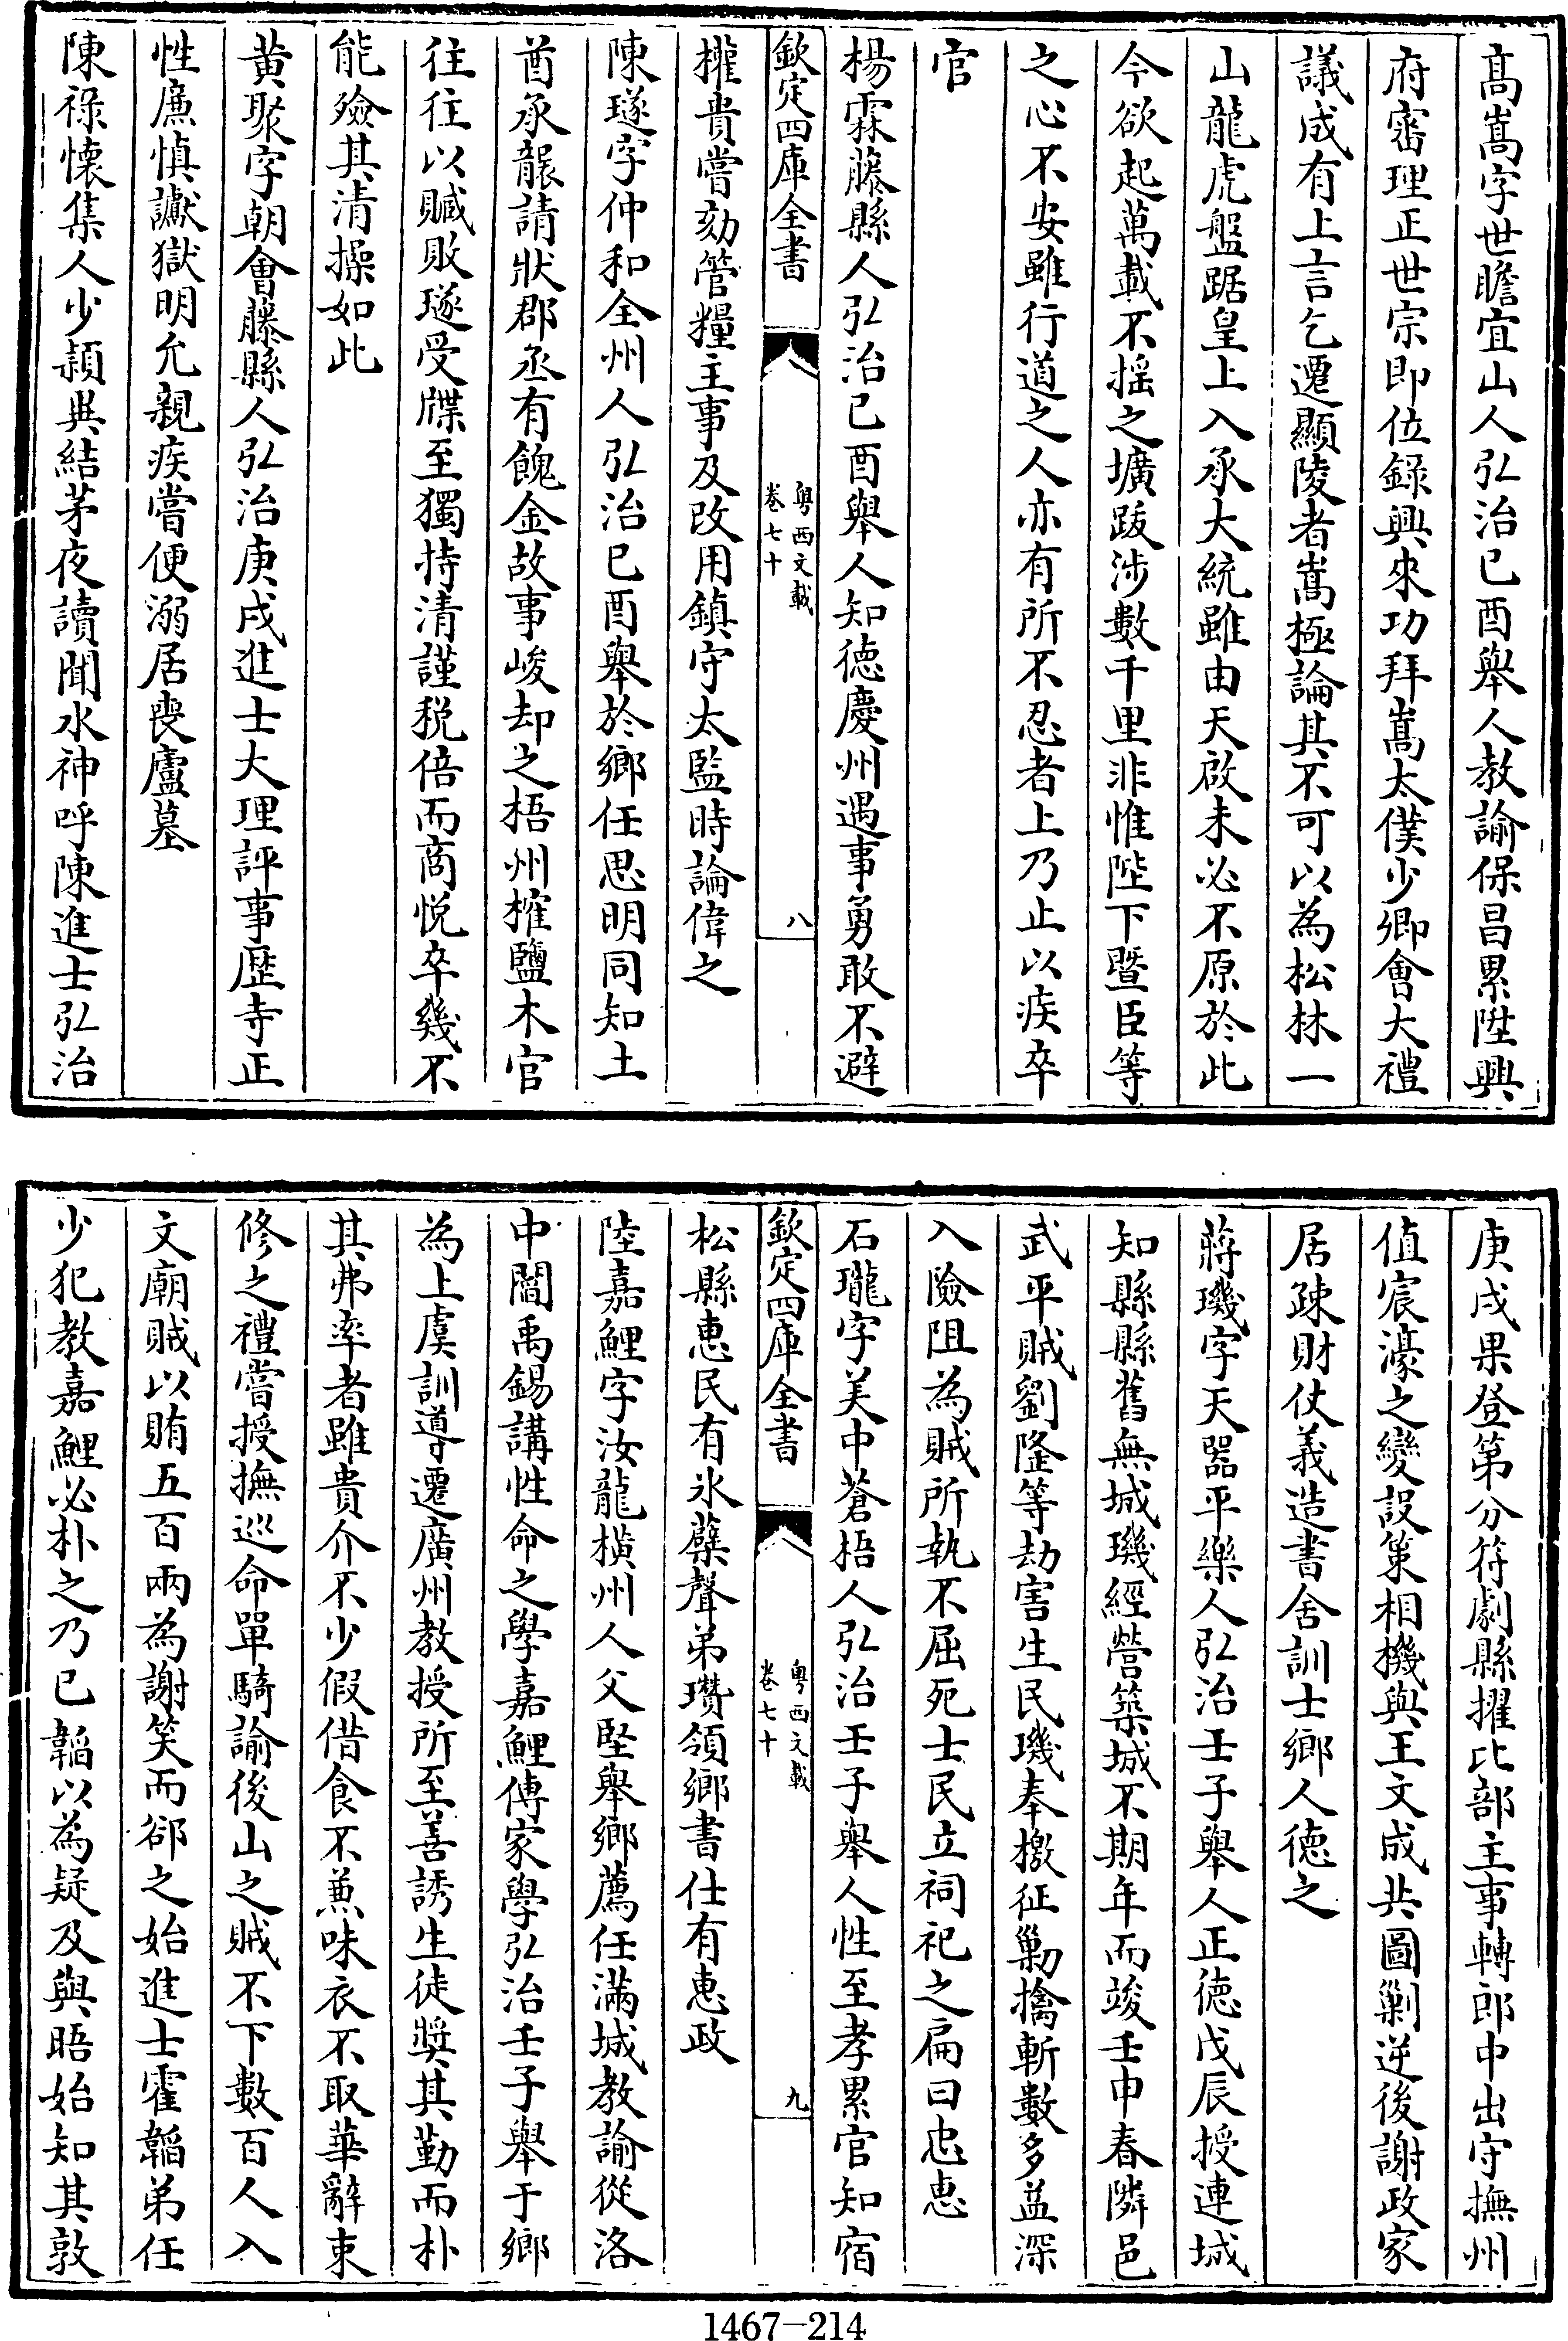 髙嵩字世瞻宜山人弘治已酉舉人教諭保昌累陞興
府審理正世宗即位録興來功拜嵩太僕少卿會大禮
議成有上言乞遷顯陵者嵩極論其不可以為松林一
山龍虎盤踞皇上入承大統雖由天啟未必不原於此
今欲起萬載不揺之壙跋涉數千里非惟陛下暨臣等
之心不安雖行道之人亦有所不忍者上乃止以疾卒
官
楊霖藤縣人弘治已酉舉人知徳慶州遇事勇敢不避
欽定四庫全書
粤西文載
卷七十
八
權貴嘗劾管糧主事及改用鎮守太監時論偉之
陳璲字仲和全州人弘治已酉舉於鄉任思明同知土
酋承襲請狀郡丞有餽金故事峻却之梧州榷鹽木官
往往以贓敗璲受牒至獨持清謹税倍而商悦卒幾不
能殮其清操如此
黄聚字朝會藤縣人弘治庚戌進士大理評事歴寺正
性廉慎讞獄明允親疾嘗便溺居喪廬墓
陳祿懐集人少頴異結茅夜讀聞水神呼陳進士弘治
庚戌果登第分符劇縣擢比部主事轉郎中出守撫州
值宸濠之變設策相機與王文成共圖剿逆後謝政家
居疎財仗義造書舍訓士鄉人徳之
蔣璣字天器平樂人弘治壬子舉人正徳戊辰授連城
知縣縣舊無城璣經營築城不期年而竣壬申春隣邑
武平賊劉隆等劫害生民璣奉檄征勦擒斬數多益深
入險阻為賊所執不屈死士民立祠祀之扁曰忠惠
石瓏字美中蒼梧人弘治壬子舉人性至孝累官知宿
欽定四庫全書
粤西文載
卷七十
九
松縣惠民有氷蘗聲弟瓚領鄉書仕有惠政
陸嘉鯉字汝龍横州人父堅舉鄉薦任滿城教諭從洛
中閻禹錫講性命之學嘉鯉傳家學弘治壬子舉于鄉
為上虞訓導遷廣州教授所至善誘生徒奬其勤而朴
其弗率者雖貴介不少假借食不兼味衣不取華辭束
修之禮嘗授撫巡命單騎諭後山之賊不下數百人入
文廟賊以賄五百兩為謝笑而郤之始進士霍韜弟任
少犯教嘉鯉必朴之乃已韜以為疑及與晤始知其敦
1467-214